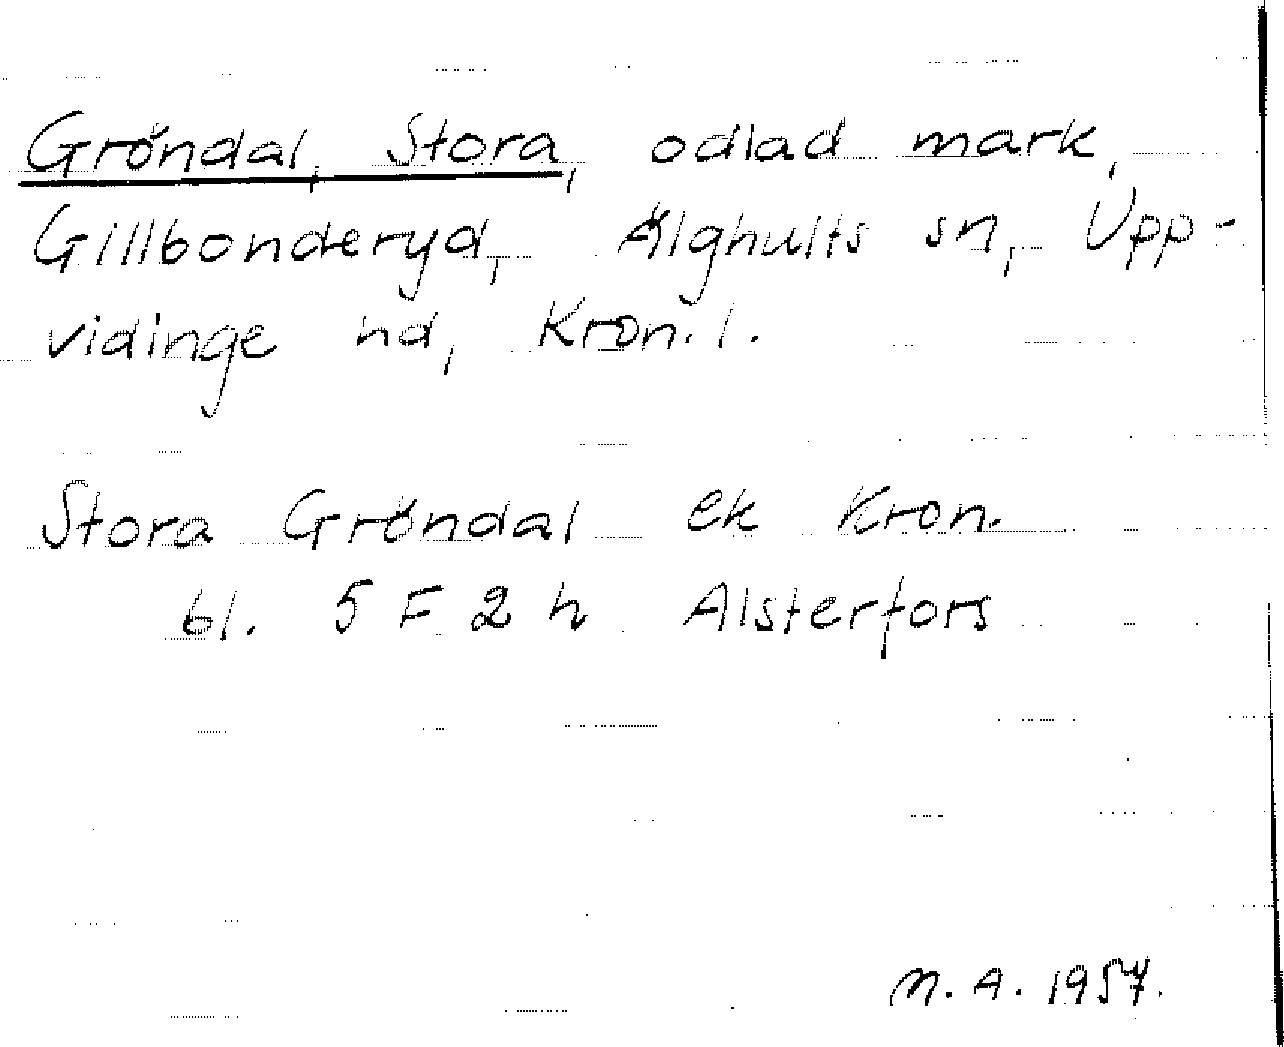 Gröndal, Stora, odlad mark,
Gillbonderyd, Älghults sn, Upp-
vidinge hd, Kron. l.
Stora Gröndal ek Kron.
bl. 5 F 2 h Alsterfors
M. A. 1957.